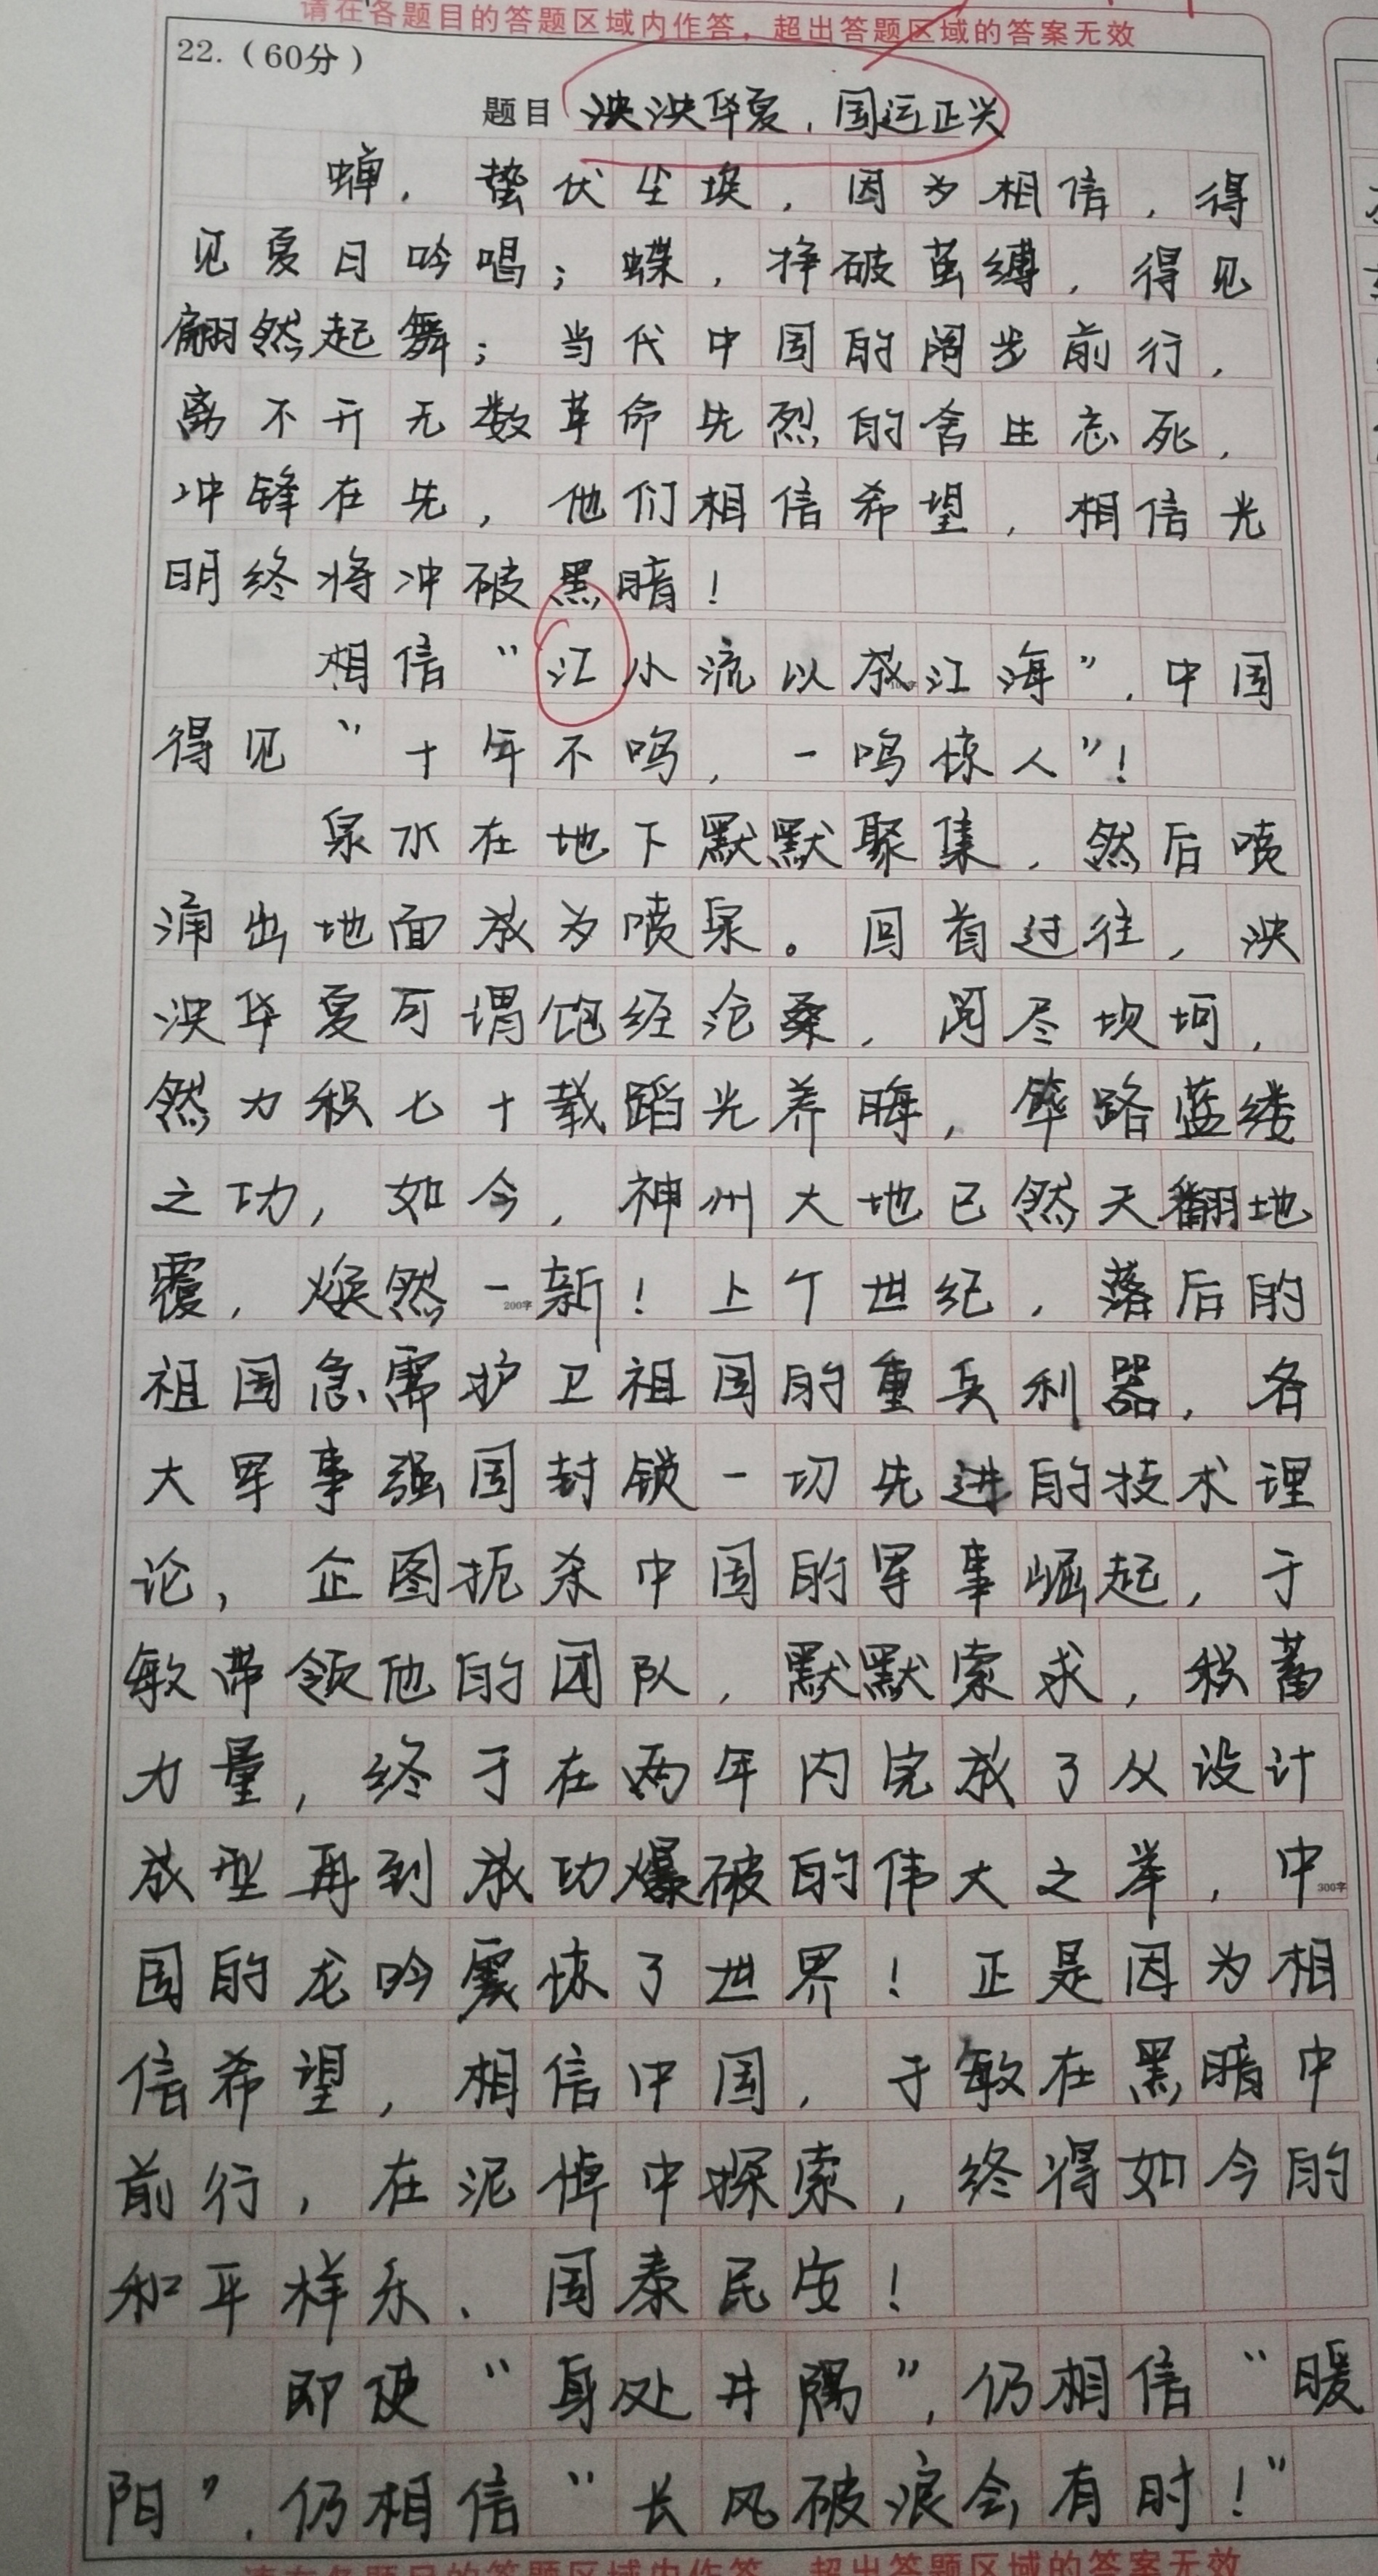 请在各题目的答题区域内作答，超出答题区域的答案无效
22.（60分）
题目 泱泱华夏，国运正兴
蝉，蛰伏尘埃，因为相信，得
见夏日吟唱；蝶，挣破茧缚，得见
翩然起舞；当代中国的阔步前行，
离不开无数革命先烈的舍生忘死，
冲锋在先，他们相信希望，相信光
明终将冲破黑暗！
相信“江小流以成江海”，中国
得见“十年不鸣，一鸣惊人”！
泉水在地下默默聚集，然后喷
涌出地面成为喷泉。回首过往，泱
泱华夏可谓饱经沧桑，阅尽坎坷，
然力积七十载蹈光养晦，筚路蓝缕
之功，如今，神州大地已然天翻地
覆，焕然一新！上个世纪，落后的
200字
祖国急需护卫祖国的重兵利器，各
大军事强国封锁一切先进的技术理
论，企图扼杀中国的军事崛起，于
敏带领他的团队，默默索求，积蓄
力量，终于在两年内完成了从设计
成型再到成功爆破的伟大之举，中
300字
国的龙吟震惊了世界！正是因为相
信希望，相信中国，于敏在黑暗中
前行，在泥悼中探索，终得如今的
和平样乐、国泰民安！
即使“身处井隅”，仍相信“暖
阳”，仍相信“长风破浪会有时！”
请在各题目的答题区域内作答，超出答题区域的答案无效